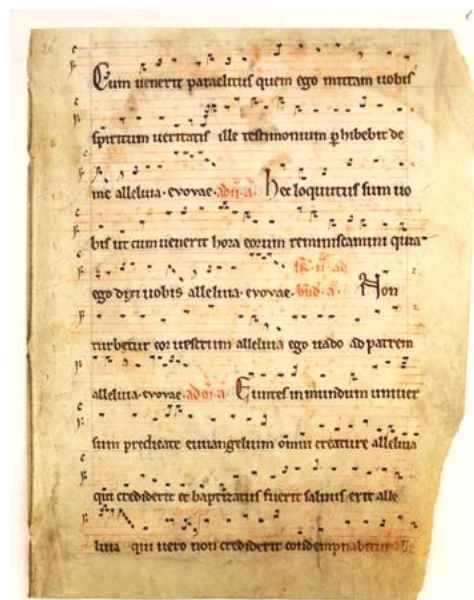 Cum uenerit paraclitus quem ego mittam uobis
spiritum ueritatis ille testimonium phibebit de
me alleluia · evovae · ad Hec loquutus sum uo
bis ut cum uenerit hora eorum reminiscamini quia
ego dixi uobis alleluia · evovae · Non
turbetur cor uestrum alleluia ego uado ad patrem
alleluia · evovae · Euntes in mundum uniuer
sum predicate euuangelium omni creature alleluia
qui crediderit et baptizatus fuerit saluus erit alle
luia qui uero non crediderit condempnabitur